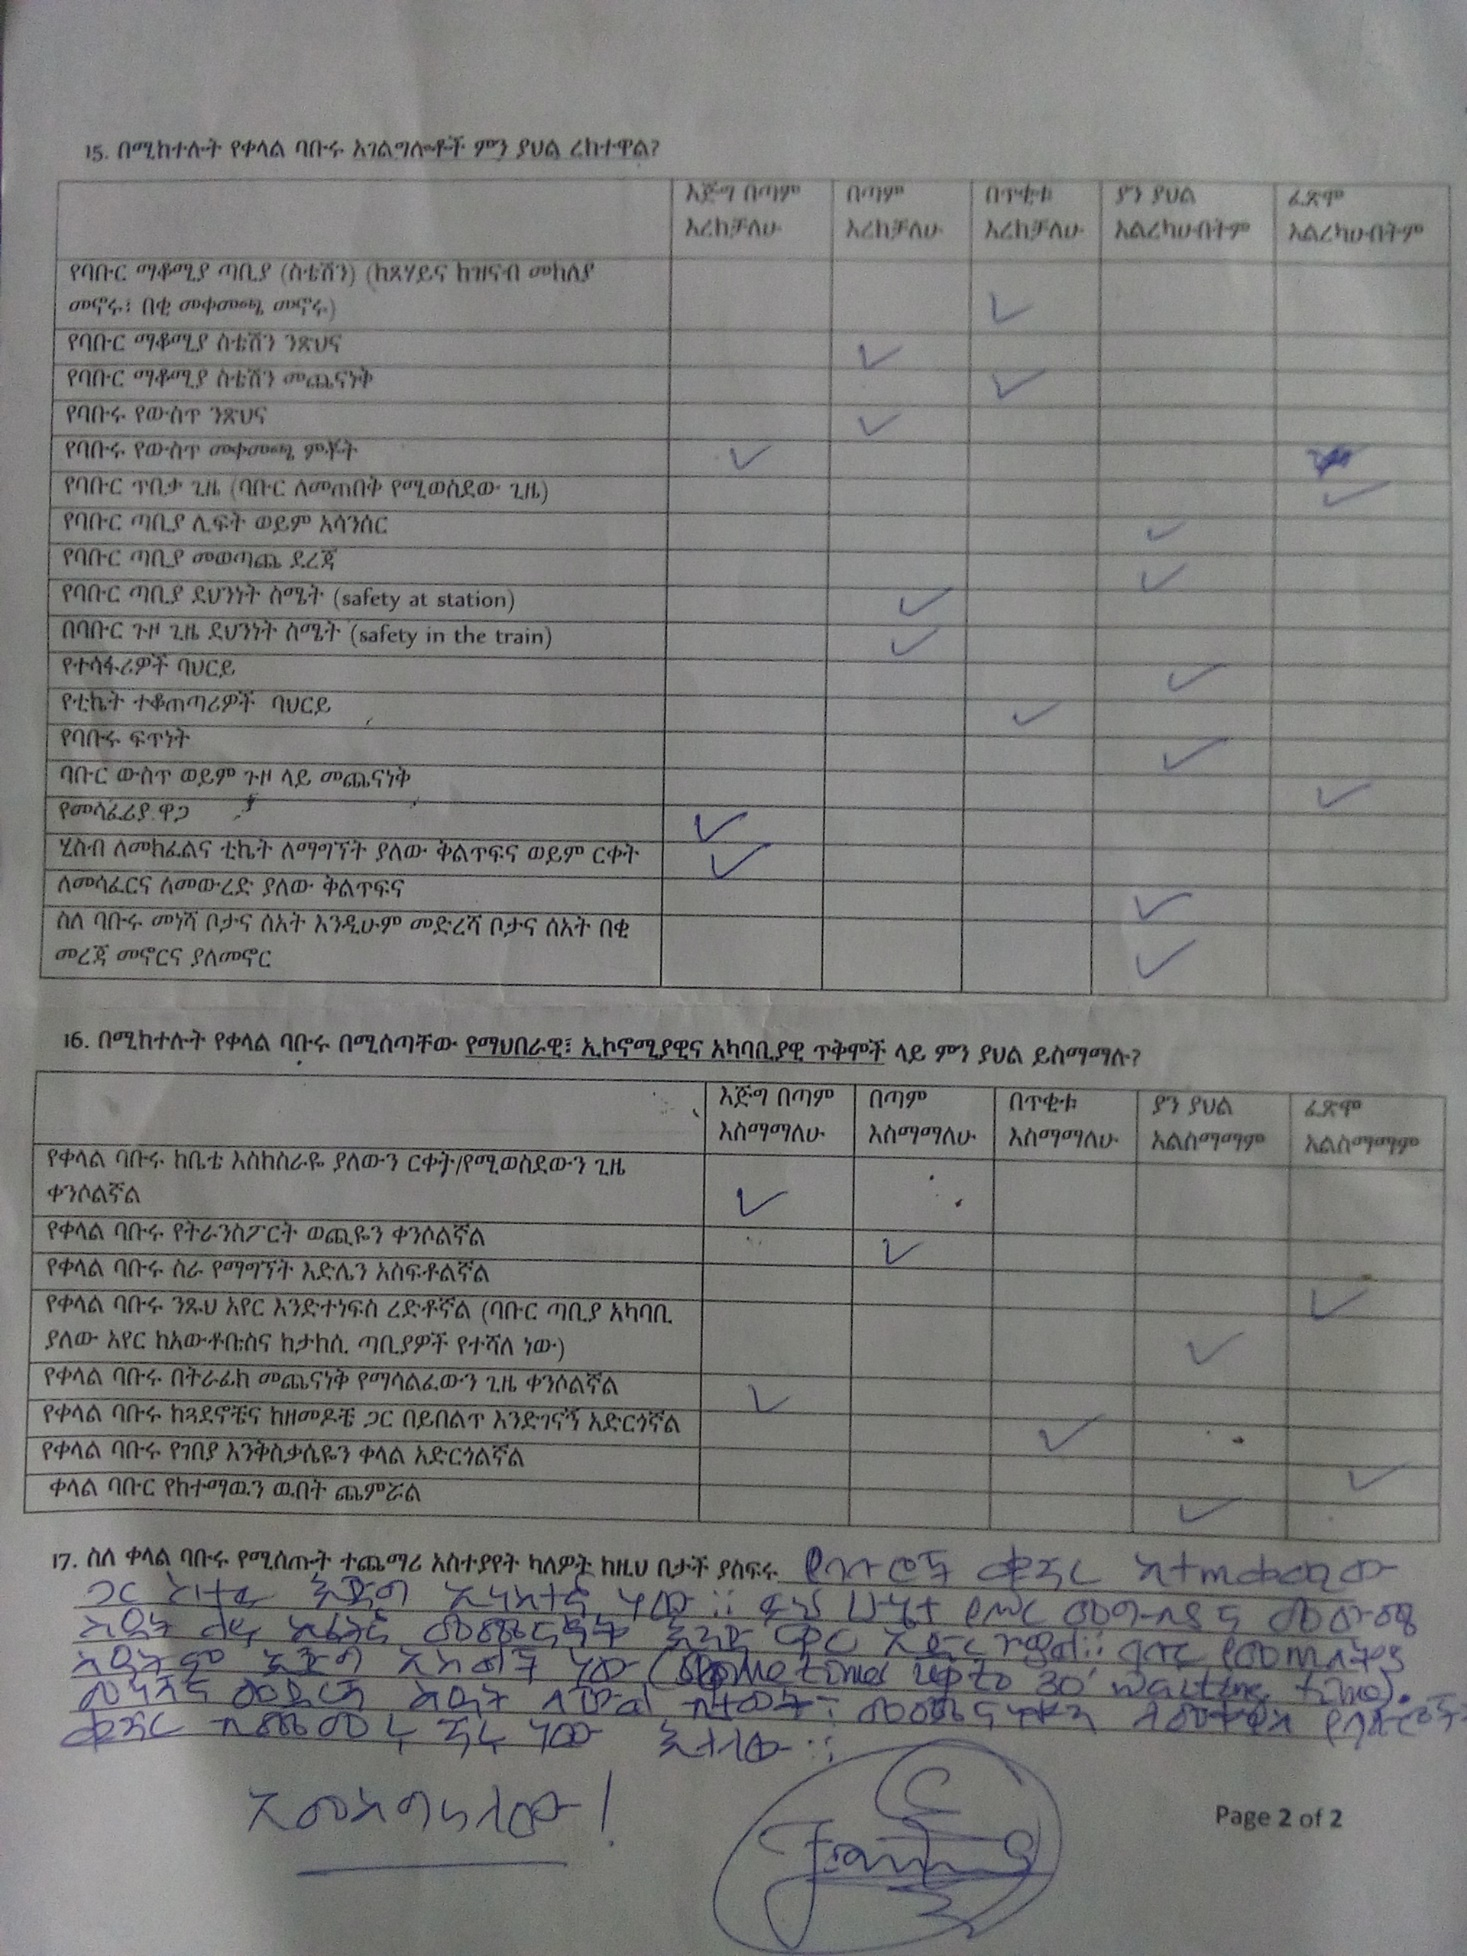 15. በሚከተሉት የቀላል ባቡሩ አገልግሎቶች ምን ያህል ረክተዋል?
እጅግ በጣም በጣም በጥቂቱ ያን ያህል ፈጽሞ
እረክቻለሁ እረክቻለሁ እረክቻለሁ አልረካሁበትም አልረካሁበትም
የባቡር ማቆሚያ ጣቢያ (ስቴሽን) (ከጸሃይና ከዝናብ መከለያ
መኖሩ፣ በቂ መቀመጫ መኖሩ) ✓
የባቡር ማቆሚያ ስቴሽን ንጽህና ✓
የባቡር ማቆሚያ ስቴሽን መጨናነቅ ✓
የባቡሩ የውስጥ ንጽህና ✓
የባቡሩ የውስጥ መቀመጫ ምቾት ✓
የባቡር ጥበቃ ጊዜ (ባቡር ለመጠበቅ የሚወስደው ጊዜ) ✓
የባቡር ጣቢያ ሊፍት ወይም አሳንሰር ✓
የባቡር ጣቢያ መወጣጫ ደረጃ ✓
የባቡር ጣቢያ ደህንነት ስሜት (safety at station) ✓
በባቡር ጉዞ ጊዜ ደህንነት ስሜት (safety in the train) ✓
የተሳፋሪዎች ባህርይ ✓
የቲኬት ተቆጠጣሪዎች ባህርይ ✓
የባቡሩ ፍጥነት ✓
ባቡር ውስጥ ወይም ጉዞ ላይ መጨናነቅ ✓
የመሳፈሪያ ዋጋ ✓
ሂስብ ለመክፈልና ቲኬት ለማግኘት ያለው ቅልጥፍና ወይም ርቀት ✓
ለመሳፈርና ለመውረድ ያለው ቅልጥፍና ✓
ስለ ባቡሩ መነሻ ቦታና ሰአት እንዲሁም መድረሻ ቦታና ሰአት በቂ
መረጃ መኖርና ያለመኖር ✓
16. በሚከተሉት የቀላል ባቡሩ በሚሰጣቸው የማህበራዊ፣ ኢኮኖሚያዊና አካባቢያዊ ጥቅሞች ላይ ምን ያህል ይስማማሉ?
እጅግ በጣም በጣም በጥቂቱ ያን ያህል ፈጽሞ
እስማማለሁ እስማማለሁ እስማማለሁ አልስማማም አልስማማም
የቀላል ባቡሩ ከቤቴ እስከስራዬ ያለውን ርቀት/የሚወስደውን ጊዜ
ቀንሶልኛል ✓
የቀላል ባቡሩ የትራንስፖርት ወጪዬን ቀንሶልኛል ✓
የቀላል ባቡሩ ስራ የማግኘት እድሌን አስፍቶልኛል ✓
የቀላል ባቡሩ ንጹህ አየር እንድተነፍስ ረድቶኛል (ባቡር ጣቢያ አካባቢ
ያለው አየር ከአውቶቡስና ከታክሲ ጣቢያዎች የተሻለ ነው) ✓
የቀላል ባቡሩ በትራፊክ መጨናነቅ የማሳልፈውን ጊዜ ቀንሶልኛል ✓
የቀላል ባቡሩ ከጓደኖቼና ከዘመዶቼ ጋር በይበልጥ እንድገናኝ አድርጎኛል ✓
የቀላል ባቡሩ የገበያ እንቅስቃሴዬን ቀላል አድርጎልኛል ✓
ቀላል ባቡር የከተማዉን ዉበት ጨምሯል ✓
17. ስለ ቀላል ባቡሩ የሚሰጡት ተጨማሪ አስተያየት ካለዎት ከዚህ በታች ያስፍሩ የባቡሮች ቁጥር ከተጠቃሚው
ጋር እጅግ ነው ። የስራ መግቢያና መውጫ
ሰዓት ላይ መጨናነቅ ።
እጅግ ነው (Sometimes up to 30' waiting time).
መነሻና መድረሻ ሰዓት
ቁጥር ቢጨመር ጥሩ ነው እላለው ።
አመሰግናለው!
Page 2 of 2